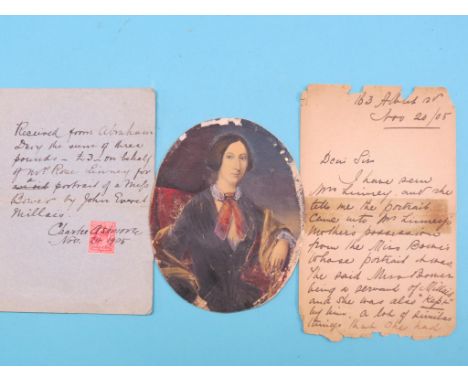 Received from Abraham
Davy the sum of three
pounds - £3 - on behalf
of Mrs Rose Linney for
a portrait of a Miss
Bower by John Everet
Millais
Charles Ashworth
Nov. 24 1905
63 Albert
Nov 20/05
Dear Sir
I have seen
Mrs Linney, and she
tells me the portrait
came into Mr Linney's
Mother's possessions
from the Miss Bower
whose portrait it was.
The said Miss Bower
being a servant of Millais
and she was also "kept"
by him. A lot of similar
things that she had